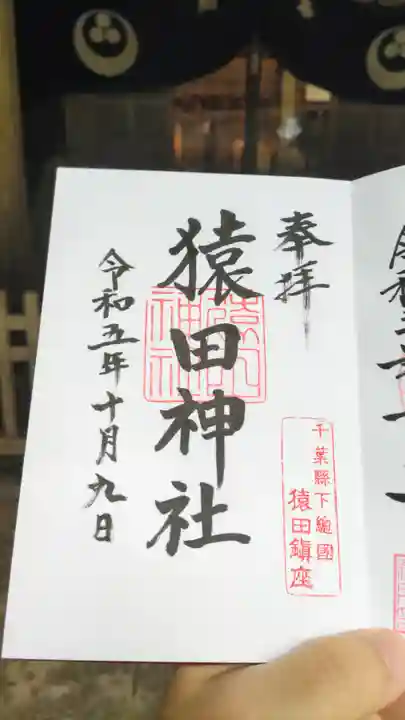 奉拝
千葉縣下總國
猿田鎭座
猿田神社
令和五年十月九日